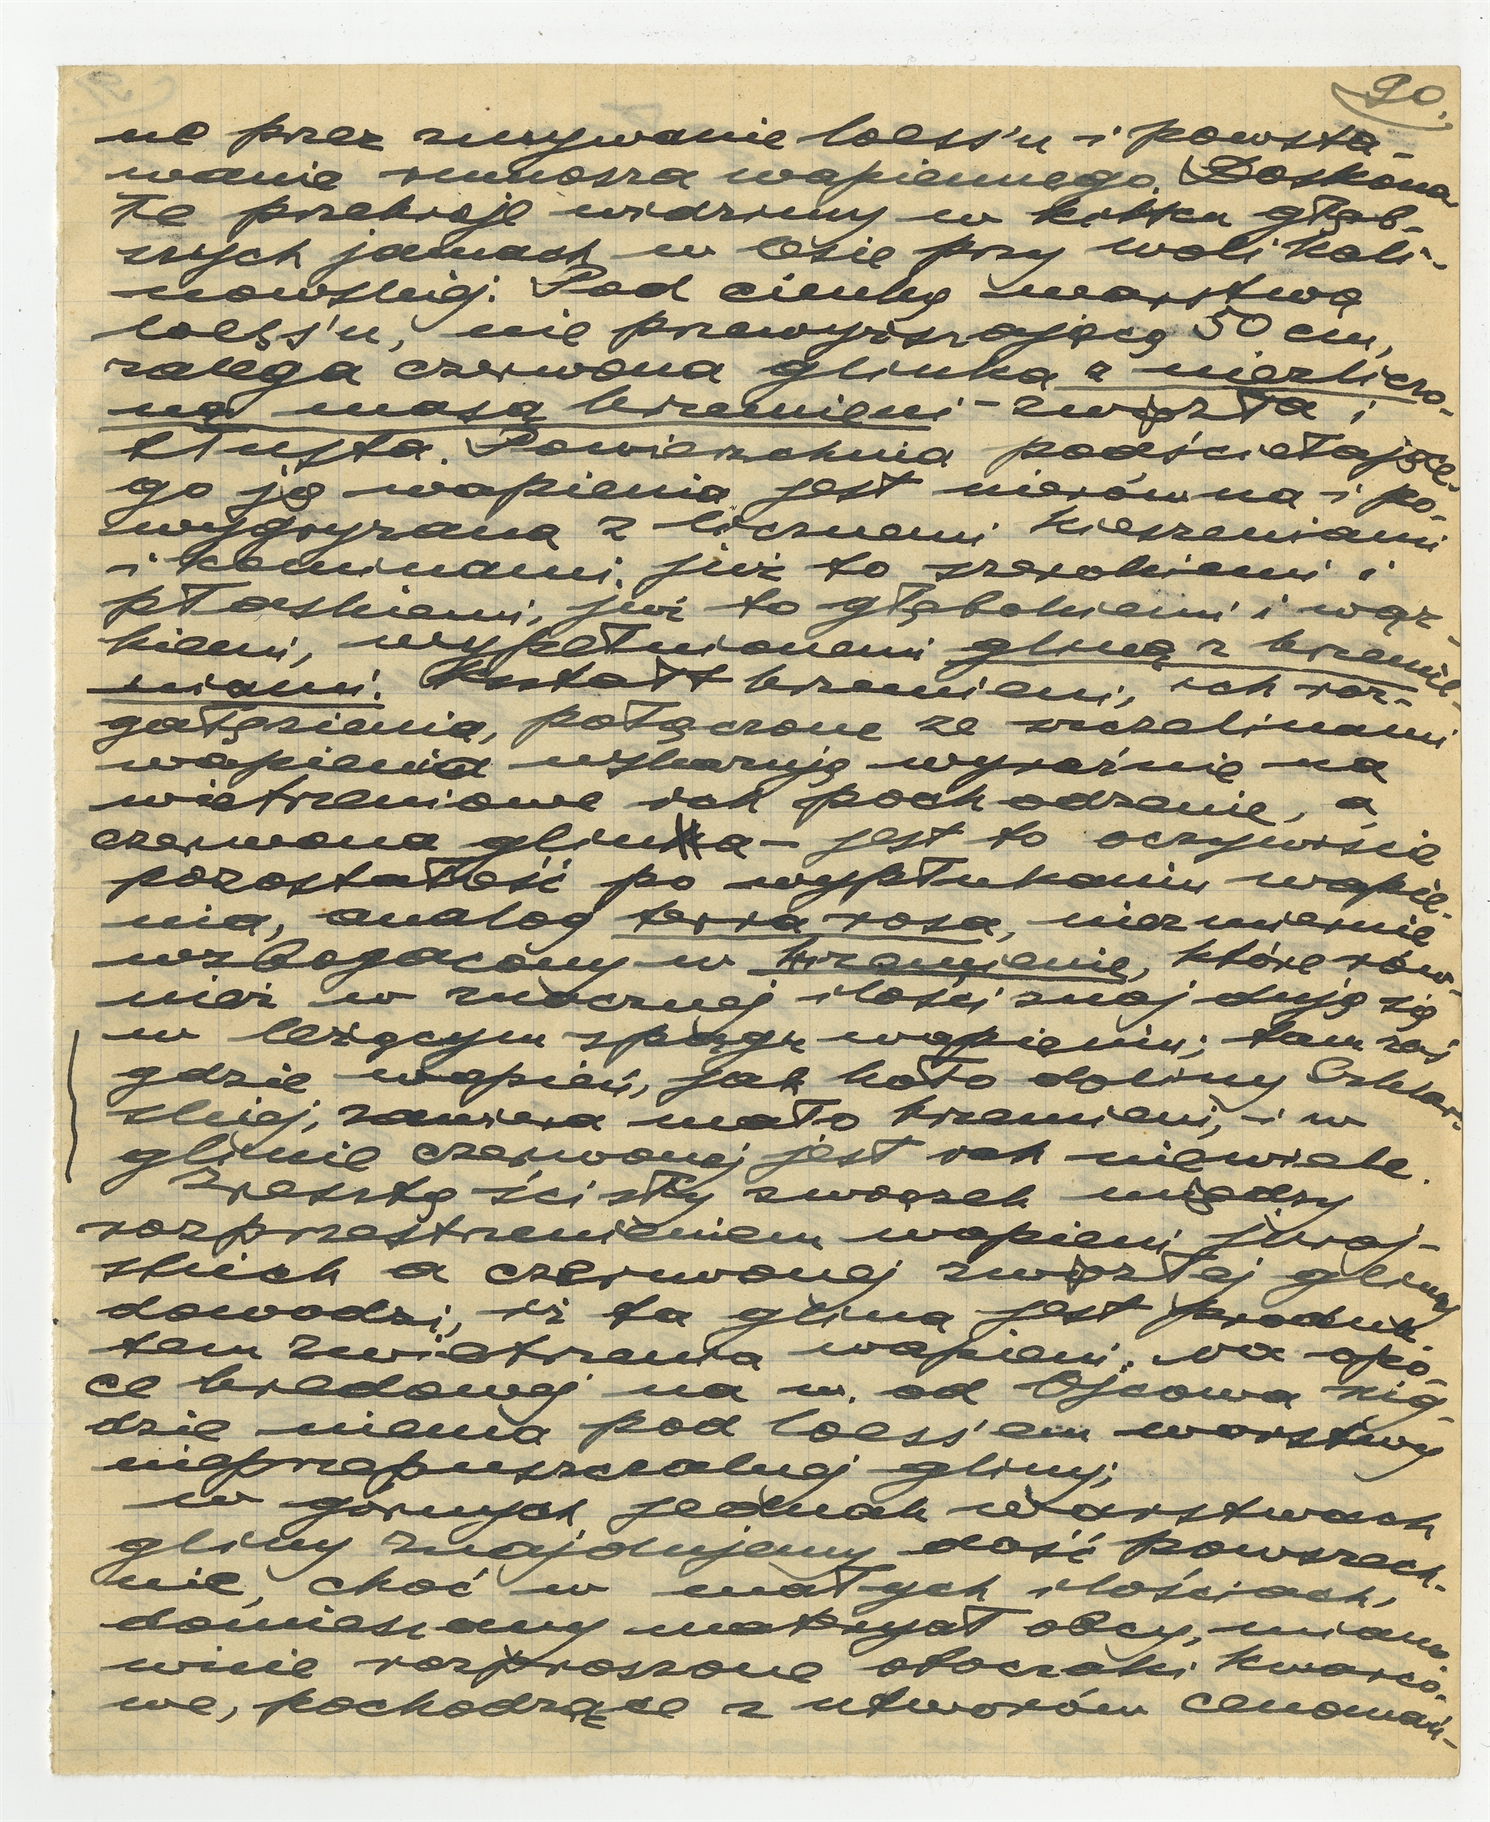 90.
ne przez zmywanie loess'u i powsta-
wanie rumosza wapiennego. Doskona
łe przekroje widzimy w kilku głęb-
szych jamach w lesie przy Woli Kali-
nowskiej. Pod cienką warstwą
loess'u, nie przewyższającą 50 cm,
zalega czerwona glinka z niezliczo-
ną masą krzemieni - zwięzła i
tłusta. Powierzchnia podściełające-
go ją wapienia jest nierówna i po-
wygryzana z licznemi kieszeniami
i kominami, już to szerokiemi i
płaskiemi, już to głębokiemi i wąz-
kiemi, wypełnionemi gliną z krzemie-
niami. Kształt krzemieni, ich roz-
gałęzienia, połączone ze szczelinami
wapienia wskazują wyraźnie na
wietrzeniowe ich pochodzenie, a
czerwona glinka - jest to oczywiście
pozostałość po wypłukaniu wapie-
nia, analog terra rosa, niezmiernie
wzbogacony w krzemienie, które rów-
nież w znacznej ilości znajdują się
w leżącym spągu wapieniu; tam zaś
gdzie wapień, jak koło doliny Szklar-
skiej, zawiera mało krzemieni, - i w
glinie czerwonej jest ich niewiele.
Zresztą ścisły związek między
rozprzestrzenieniem wapieni juraj-
skich a czerwonej zwięzłej gliny
dowodzi, iż ta glina jest produk
tem zwietrzenia wapieni. Na opo-
ce kredowej na w. od Ojcowa nig-
dzie niema pod loess'em warstwy
nieprzepuszczalnej gliny;
w górnych jednak warstwach
gliny znajdujemy dość powszech-
nie, choć w małych ilościach,
domieszany materyał obcy, miano
wicie rozproszone otoczaki kwarco-
we, pochodzące z utworów cenomań-